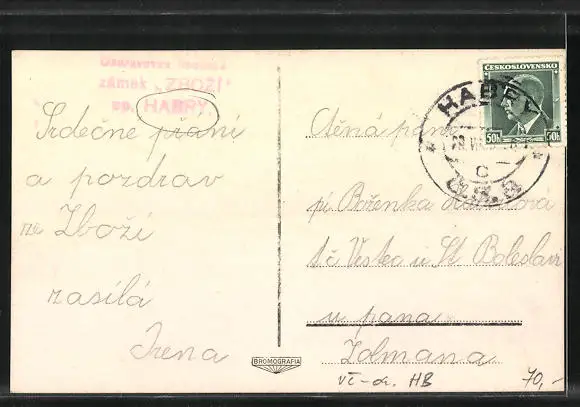 zámek „ZBOŽÍ"
HABRY
Srdečné přání
a pozdrav
ze Zboží
zasílá
Irena
BROMOGRAFIA
ČESKOSLOVENSKO
50h 50h
HABRY
C
Ctěná paní
pí Boženka
Vestec u St Boleslav
u pana
Zolmana
vč-ok. HB
70,-